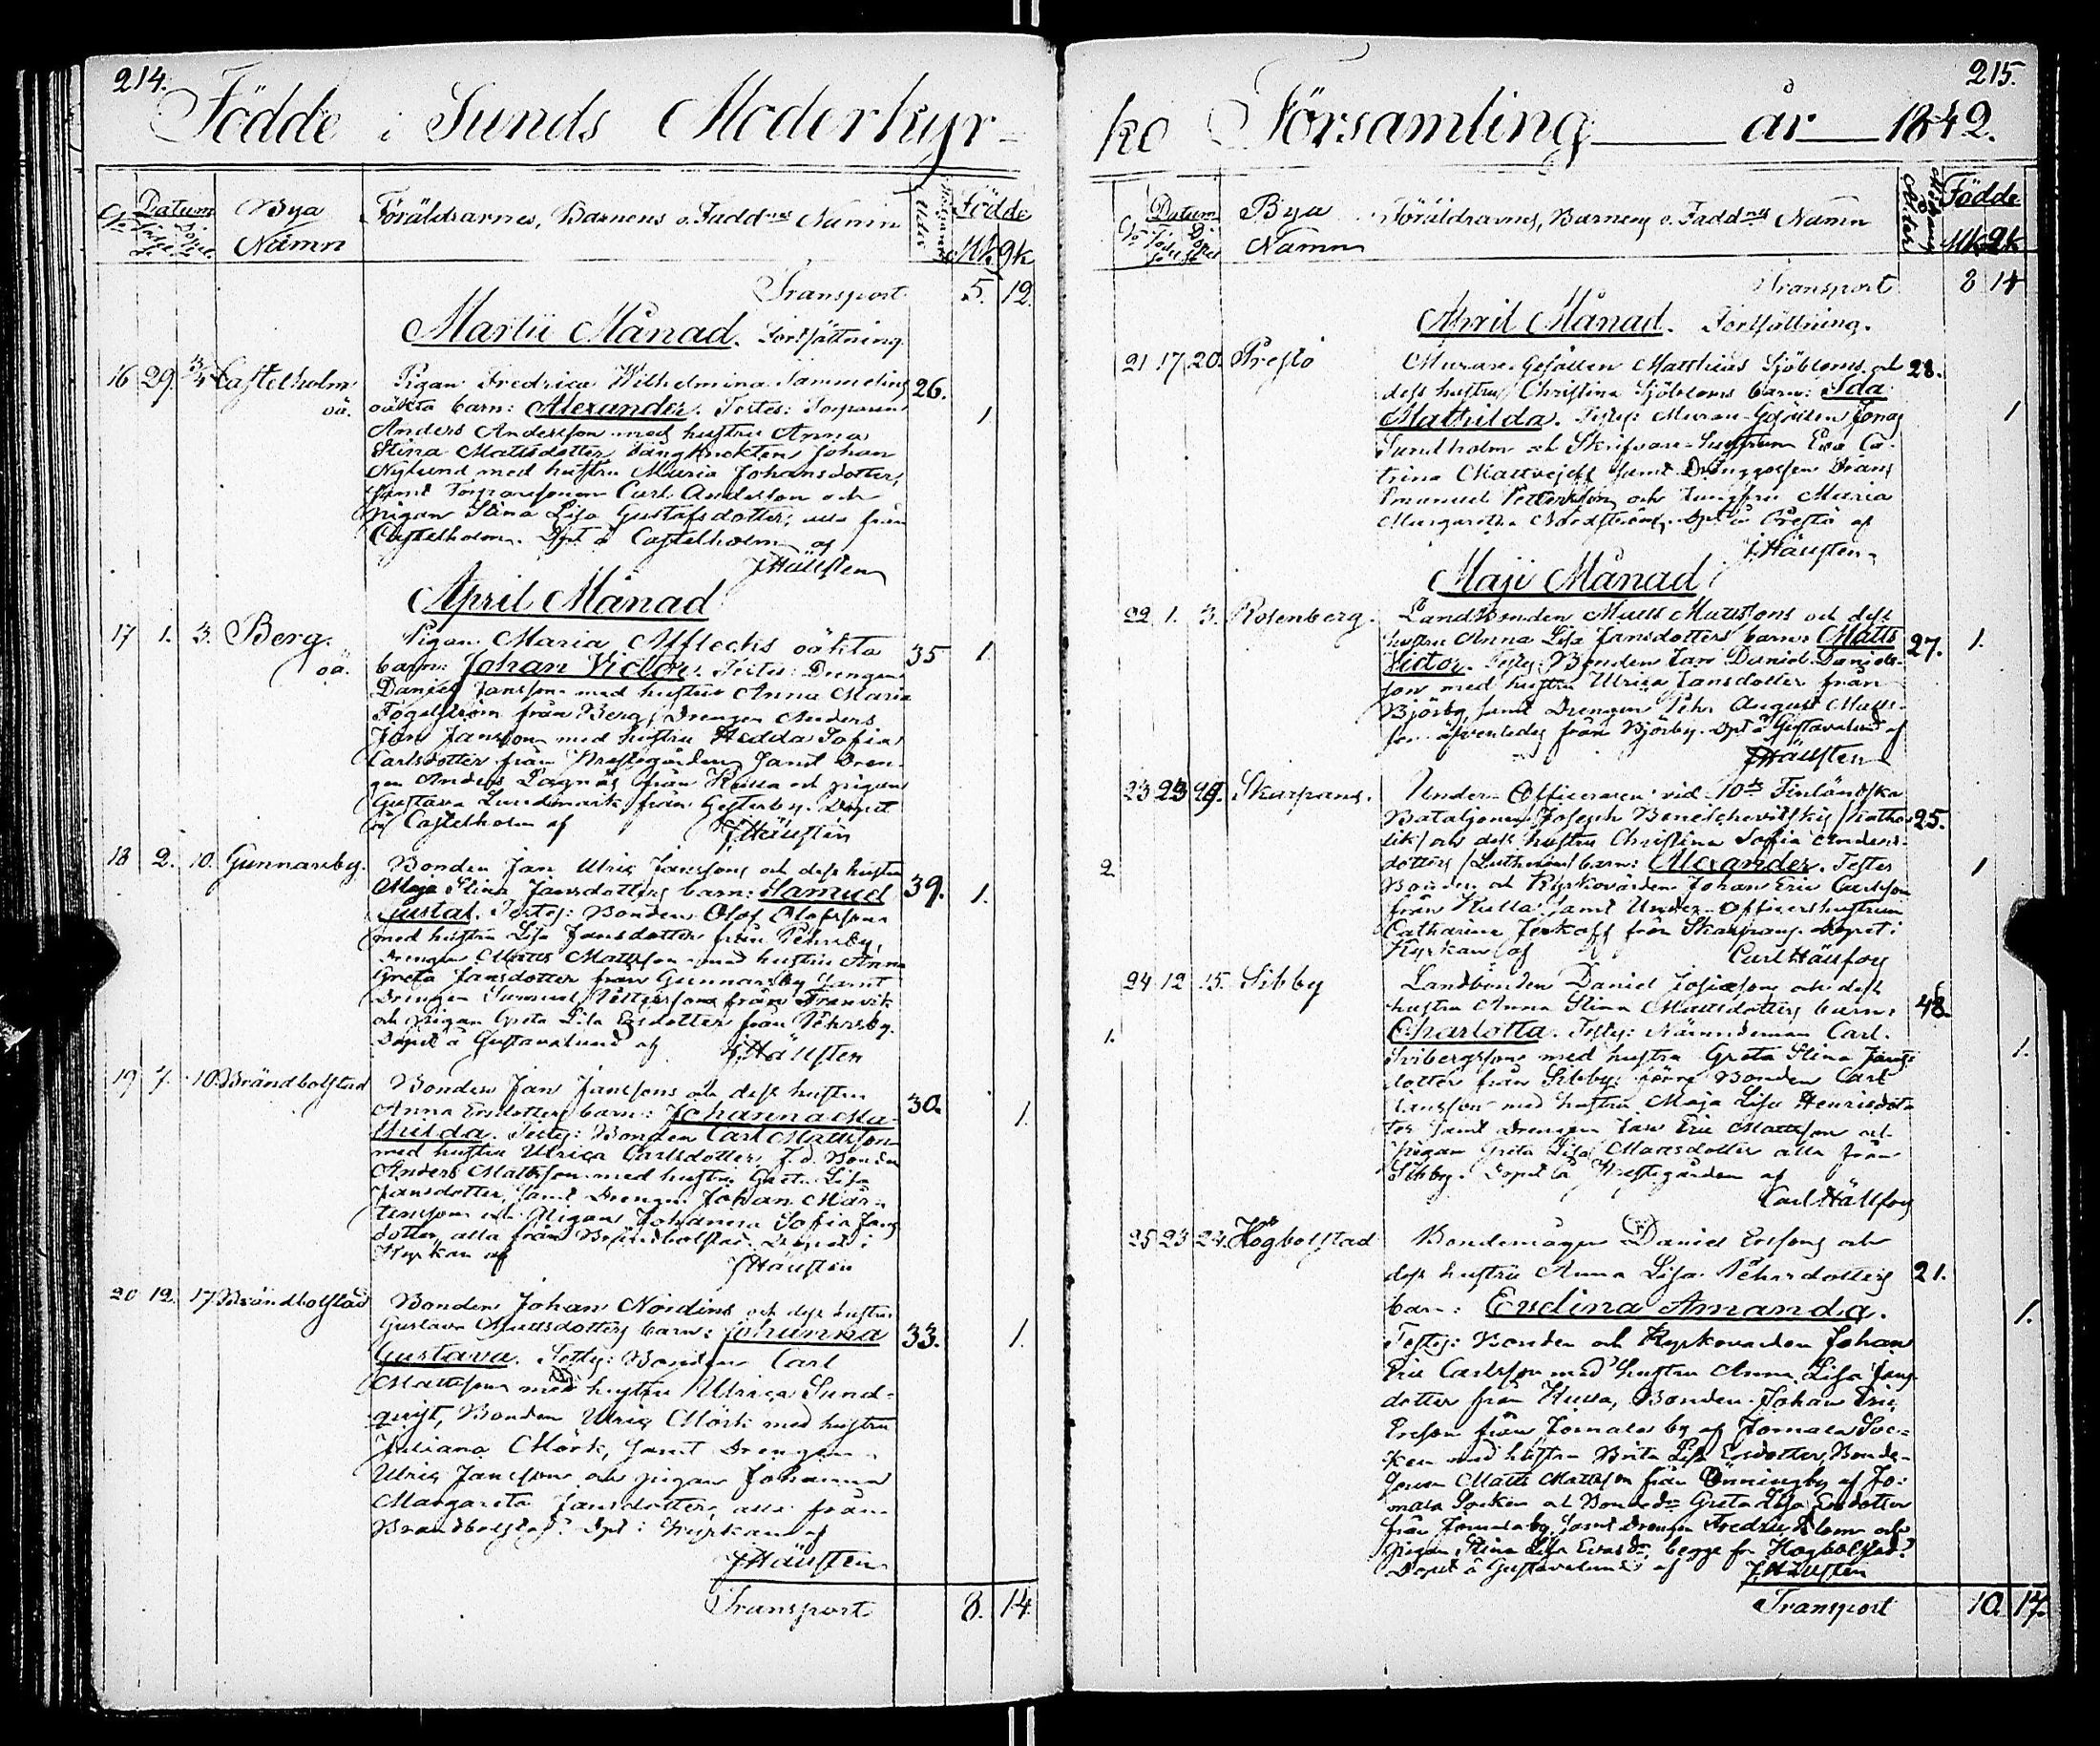 214.
Födde i Sunds Moderkyr-
No Datum Bya Namn Föräldrarnes, Barnens o. Faddnes Namn Ålder Födde
Mk Qk
Transport 5. 12
Martii Månad. Fortsättning.
16 29. 3/4 Castelholm oä. Pigan Fredrica Wilhelmina Sammelins 26.
oäkta barn: Alexander. Testes: Torparen 1
Anders Andersson med hustru Anna
Stina Mattsdotter, Johan
Nylund med hustru Maria Johansdotter,
samt Torparesonen Carl Andersson och
pigan Stina Lisa Gustafsdotter, alla från
Castelholm. Dpt å Castelholm af
J. Hällsten
April Månad
17 1. 3. Berg. oä. Pigan Maria Afflecks oäkta 35 1.
barn: Johan Victor. Testes: Drengen
Daniel Jansson med hustru Anna Maria
Fogelström från Berg, Drengen Anders
Jan Jansson med hustru Hedda Sofia
Carlsdotter från Prestegården samt Dren-
gen Anders Dagnäs från Kulla och pigan
Gustava Lundmark från Gesterby. Döpt
å Castelholm af J. Hällsten
18 2. 10. Gunnarsby. Bonden Jan Ulric Janssons och dess hustru
Maja Stina Jansdotters barn: Samuel 39. 1.
Gustaf. Testes: Bonden Olof Olofsson
med hustru Lisa Jansdotter från Pehrsby,
Drengen Matts Mattsson med hustru Anna
Greta Jansdotter från Gunnarsby samt
Drengen Samuel från Tranvik
och pigan Greta Lisa Ersdotter från Pehrsby.
Döpt å Gustavalund af J. Hällsten
19 7. 10. Brändbolstad Bonden Jan Janssons och dess hustru
Anna Ersdotters barn: Johanna Ma- 30. 1.
thilda. Testes: Bonden Carl Mattsson
med hustru Ulrica Carlsdotter, f.d. Bonden
Anders Mattsson med hustru Greta Lisa
Jansdotter, samt Drengen Johan Mår-
tensson och Pigan Johanna Sofia Jans
dotter, alla från Brändbolstad. Döpt i
Kyrkan af J. Hällsten
20 12. 17. Brändbolstad Bonden Johan Nordins och dess hustru
Gustava Mattsdotters barn: Johanna 33. 1.
Gustava. Testes: Bonden Carl
Mattsson med hustru Ulrica Sund-
qvist, Bonden Ulric Mörk med hustru
Juliana Mörk, samt Drengen
Ulric Jansson och pigan Johanna
Margareta Jansdotter, alla från
Brändbolstad. Dpt i Kyrkan af
J. Hällsten
Transport 8. 14.
215.
ko Församling år 1842.
No Datum Bya Namn Föräldrarnes, Barnens o. Faddnes Namn Ålder Födde
Mk Qk
Transport 8 14
April Månad. Fortsättning.
21 17 20. Prestö Murare-Gesällen Matthias Sjöbloms och 28.
dess hustru Christina Sjöbloms barn: Ida
Mathilda. Testes: Murare-Gesällen Jonas 1
Sundholm och Skrifvare-hustrun Eva Ca-
trina Mattvejeff samt Dränggossen Frans
Emanuel Pettersson och Jungfru Maria
Margaretha Nordström. Dpt å Prestö af
J. Hällsten
Maji Månad
22 1. 3. Rosenberg. Landbonden Matts Mattssons och dess
hustru Anna Lisa Jansdotters barn: Matts 27. 1.
Victor. Testes: Bonden Jan Daniel Daniels-
son med hustru Ulrica Jansdotter från
Björby, samt Drengen Pehr August Matts-
son äfvenledes från Björby. Dpt å Gustavalund af
J. Hällsten
23 23 29. Skarpans. Under-Officeraren vid 10de Finländska
Bataljonen Joseph Benischevitskij /katho- 25.
lik/ och dess hustru Christina Sofia Anders-
2 dotters /Lutheran/ barn: Alexander. Testes 1
Bonden och Kyrkovärden Johan Eric Carlsson
från Kulla samt Under-Officershustrun
Catharina Jerkoff från Skarpans. Döpt i
Kyrkan af Carl Hällfors
24 12 15. Sibby Landbonden Daniel Josiæsons och dess
hustru Anna Stina Mattsdotters barn: 48
1. Charlotta. Testes: Nämndeman Carl
Svibergsson med hustru Greta Stina Jans- 1.
dotter från Sibby: förre Bonden Carl
Jansson med hustru Maja Lisa Henricsdot-
ter samt Drengen Jan Eric Mattsson och
pigan Greta Lisa Mattsdotter alla från
Sibby. Döpt å Prestegården af
Carl Hällfors
25 23 24. Högbolstad Bondemågen Daniel Erssons och
dess hustru Anna Lisa Pehrsdotters 21.
barn: Evelina Amanda. 1.
Testes: Bonden och Kyrkovärden Johan
Eric Carlsson med hustru Anna Lisa Jans-
dotter från Kulla, Bonden Johan Eric
Ersson från Jomala by af Jomala Soc-
ken med hustru Brita Lisa Ersdotter, Bonde-
sonen Matts Mattsson från Önningby af Jo-
mala Socken och Bonded:r Greta Lisa Ersdotter
från Jomala by, samt Drengen Fredric Blom och
pigan Stina Lisa Ersd:r, begge fr. Högbolstad.
Döpt å Gustavalund af J. Hällsten
Transport 10. 17.